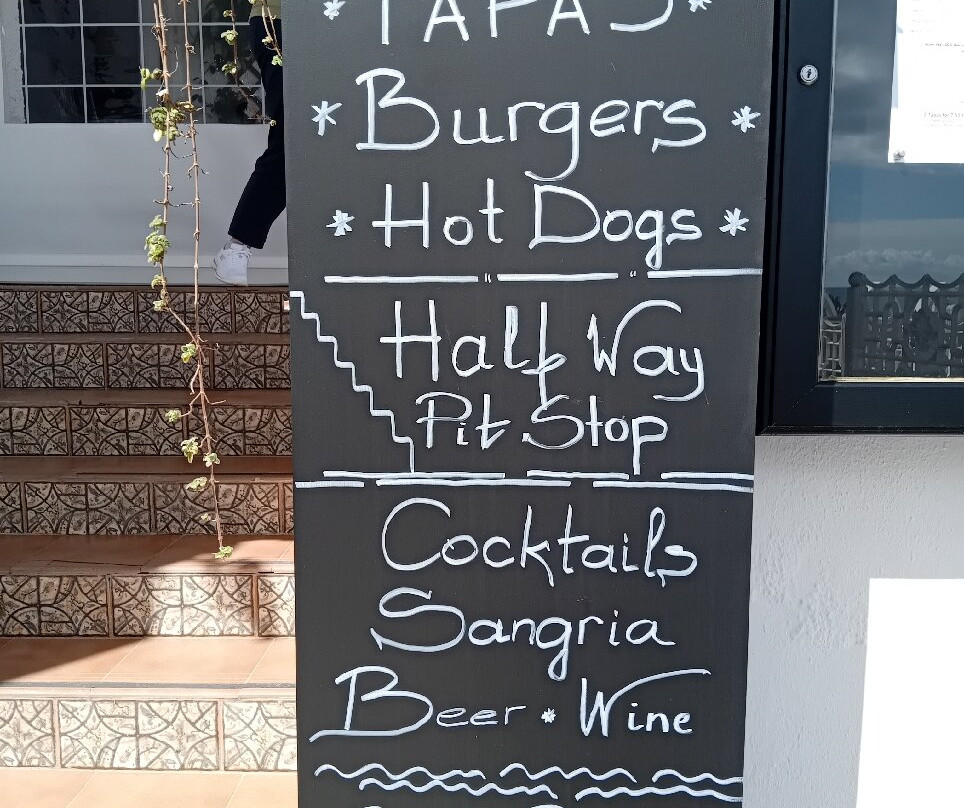 * TAPAS *
* Burgers *
* Hot Dogs *
Half Way
Pit Stop
Cocktails
Sangria
Beer * Wine